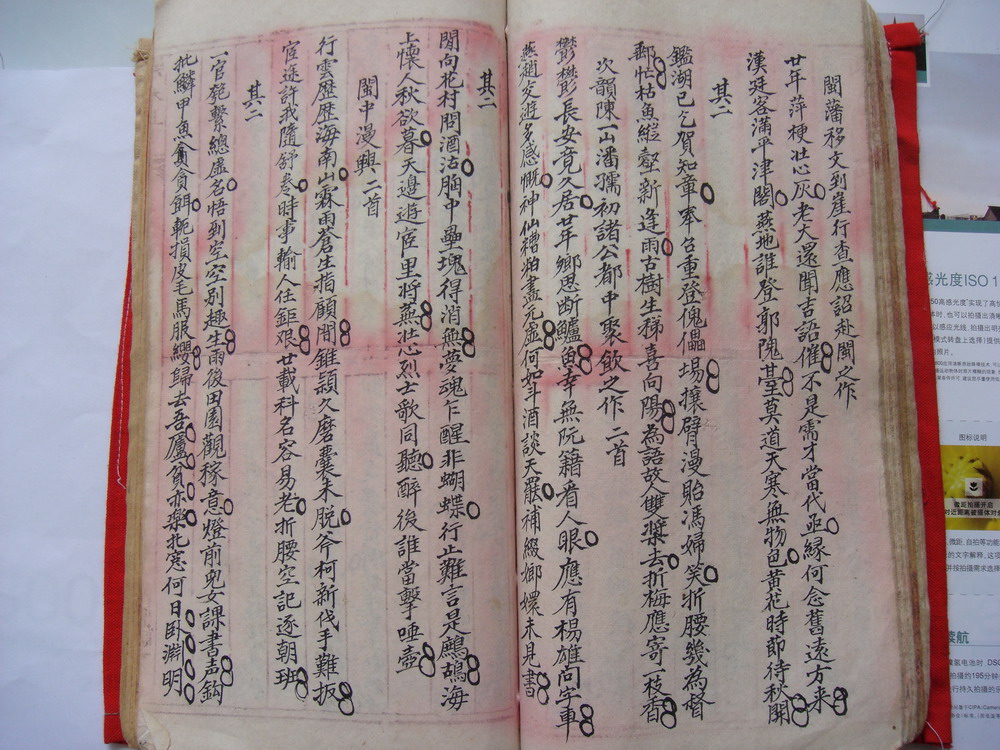 閩藩移文到崖行查應詔赴閩之作
廿年萍梗壯心灰老大還聞吉語催不是需才當代亟緣何念舊遠方來
漢廷客滿平津閣燕地誰登郭隗臺莫道天寒無物色黃花時節待秋開
其二
鑑湖已乞賀知章奉召重登傀儡場攘臂漫貽馮婦笑折腰幾為督
郵忙枯魚縱壑新逢雨古樹生稊喜向陽為語故人雙槳去折梅應寄一枝香
次韻陳一山潘孺初諸公都中聚飲之作二首
鬱鬱長安竟久居廿年鄉思斷鱸魚幸無阮籍看人眼應有楊雄問字車
燕趙交遊多感慨神仙糟粕盡元虛何如斗酒談天罷補綴娜嬛未見書
其二
閒向花村問酒沽胸中壘塊得消無夢魂乍醒非蝴蝶行止難言是鷓鴣海
上懷人秋欲暮天邊遊宦里將蕪壯心烈士歌同聽醉後誰當擊唾壺
閩中漫興二首
行雲歷歷海南山霖雨蒼生指顧間錐穎久磨囊未脫斧柯新伐手難扳
宦途許我隨舒卷時事輸人任鉅艱廿載科名容易老折腰空記逐朝班
其二
一官匏繫總虛名悟到空空別趣生雨後田園觀稼意燈前兒女課書声鈎
批鱗甲魚貪餌軛損皮毛馬服纓歸去吾廬貧亦樂北窓何日卧淵明
感光度ISO 1
图标说明
续航